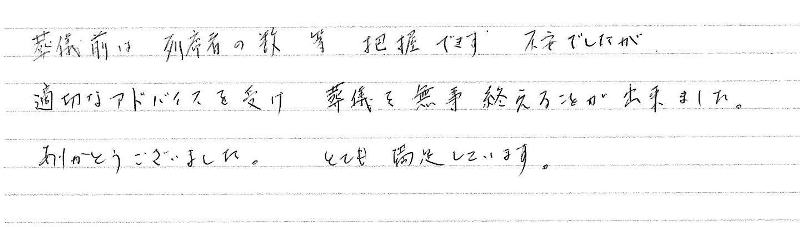 葬儀前は 列席者の数 等 把握できず 不安でしたが
適切なアドバイスを受け 葬儀を無事終えることが出来ました。
ありがとうございました。 とても満足しています。